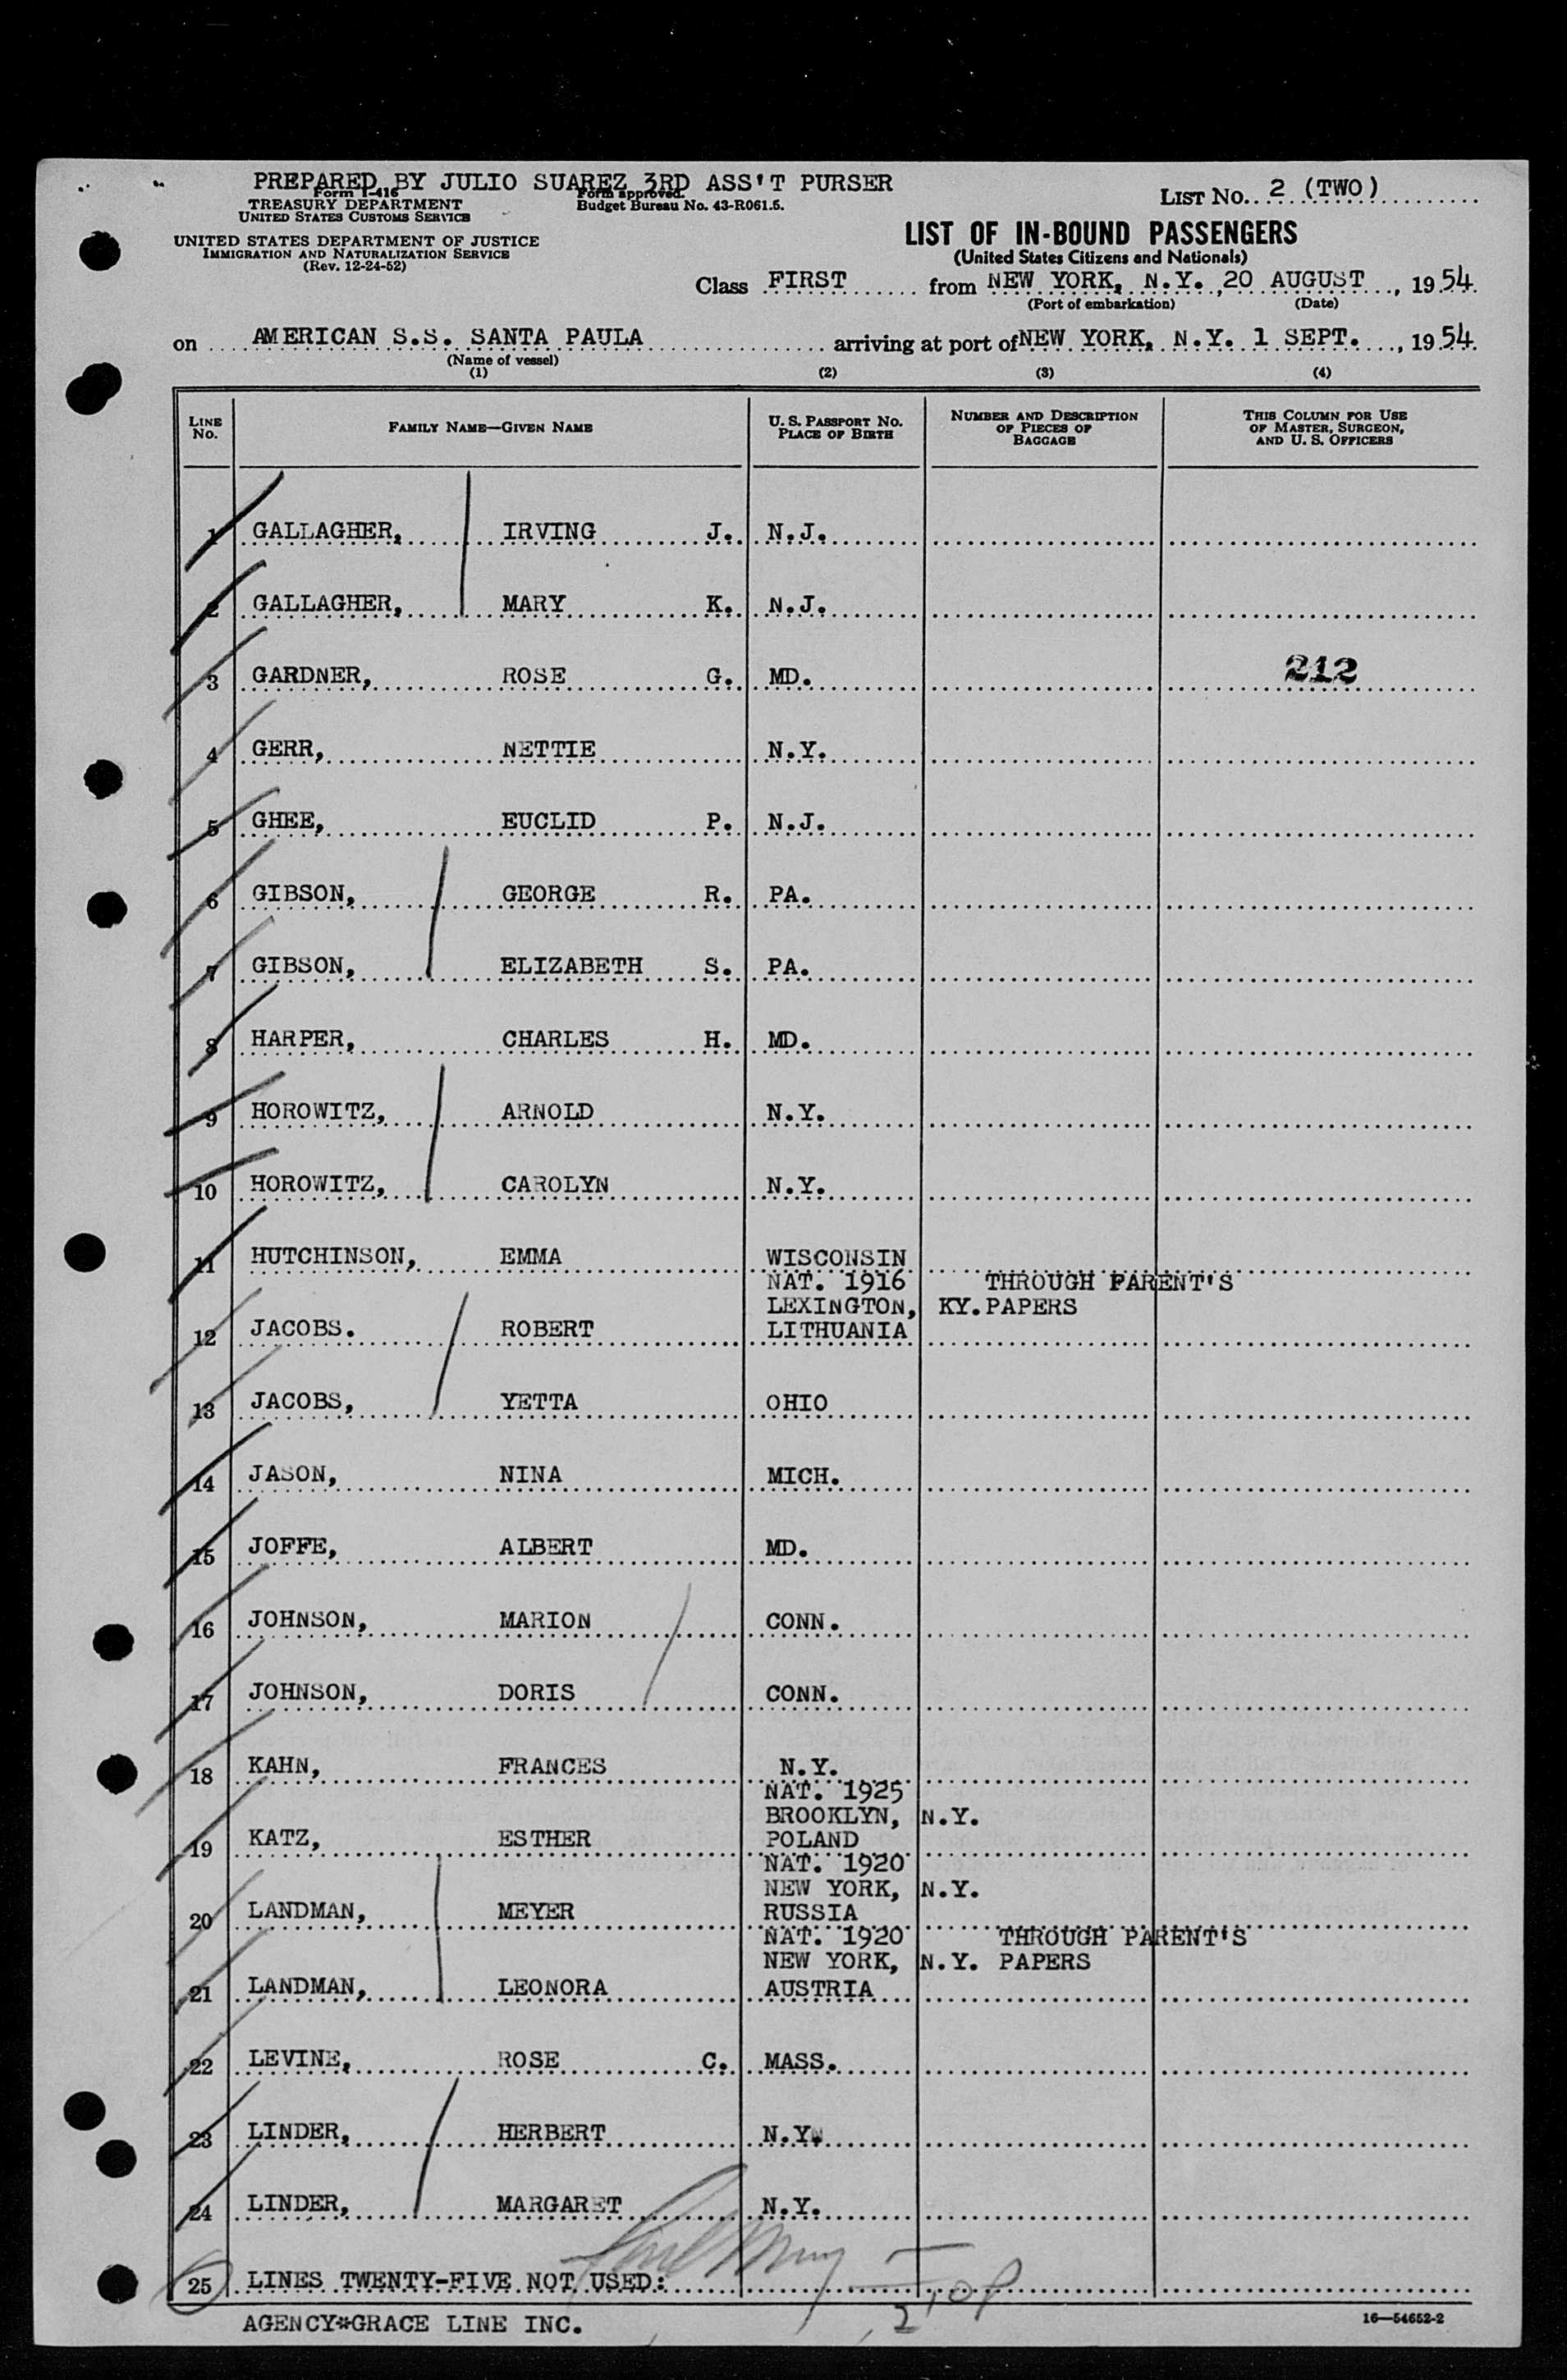 PREPARED BY JULIO SUAREZ 3RD ASS'T PURSER
Form I-416
TREASURY DEPARTMENT
UNITED STATES CUSTOMS SERVICE
Form approved.
Budget Bureau No. 43-R061.5.
LIST No. 2 (TWO)
UNITED STATES DEPARTMENT OF JUSTICE
IMMIGRATION AND NATURALIZATION SERVICE
(Rev. 12-24-52)
LIST OF IN-BOUND PASSENGERS
(United States Citizens and Nationals)
Class FIRST from NEW YORK, N.Y., 20 AUGUST, 1954
(Port of embarkation) (Date)
on AMERICAN S.S. SANTA PAULA arriving at port of NEW YORK, N.Y. 1 SEPT., 1954
(Name of vessel)
(1) (2) (3) (4)
LINE No. FAMILY NAME—GIVEN NAME U. S. PASSPORT No. PLACE OF BIRTH NUMBER AND DESCRIPTION OF PIECES OF BAGGAGE THIS COLUMN FOR USE OF MASTER, SURGEON, AND U. S. OFFICERS
1 GALLAGHER, IRVING J. N.J.
2 GALLAGHER, MARY K. N.J.
3 GARDNER, ROSE G. MD. 212
4 GERR, NETTIE N.Y.
5 GHEE, EUCLID P. N.J.
6 GIBSON, GEORGE R. PA.
7 GIBSON, ELIZABETH S. PA.
8 HARPER, CHARLES H. MD.
9 HOROWITZ, ARNOLD N.Y.
10 HOROWITZ, CAROLYN N.Y.
11 HUTCHINSON, EMMA WISCONSIN
NAT. 1916 THROUGH PARENT'S
LEXINGTON, KY. PAPERS
12 JACOBS. ROBERT LITHUANIA
13 JACOBS, YETTA OHIO
14 JASON, NINA MICH.
15 JOFFE, ALBERT MD.
16 JOHNSON, MARION CONN.
17 JOHNSON, DORIS CONN.
18 KAHN, FRANCES N.Y.
NAT. 1925
BROOKLYN, N.Y.
19 KATZ, ESTHER POLAND
NAT. 1920
NEW YORK, N.Y.
20 LANDMAN, MEYER RUSSIA
NAT. 1920 THROUGH PARENT'S
NEW YORK, N.Y. PAPERS
21 LANDMAN, LEONORA AUSTRIA
22 LEVINE, ROSE C. MASS.
23 LINDER, HERBERT N.Y.
24 LINDER, MARGARET N.Y.
25 LINES TWENTY-FIVE NOT USED:
AGENCY*GRACE LINE INC.
16—54652-2